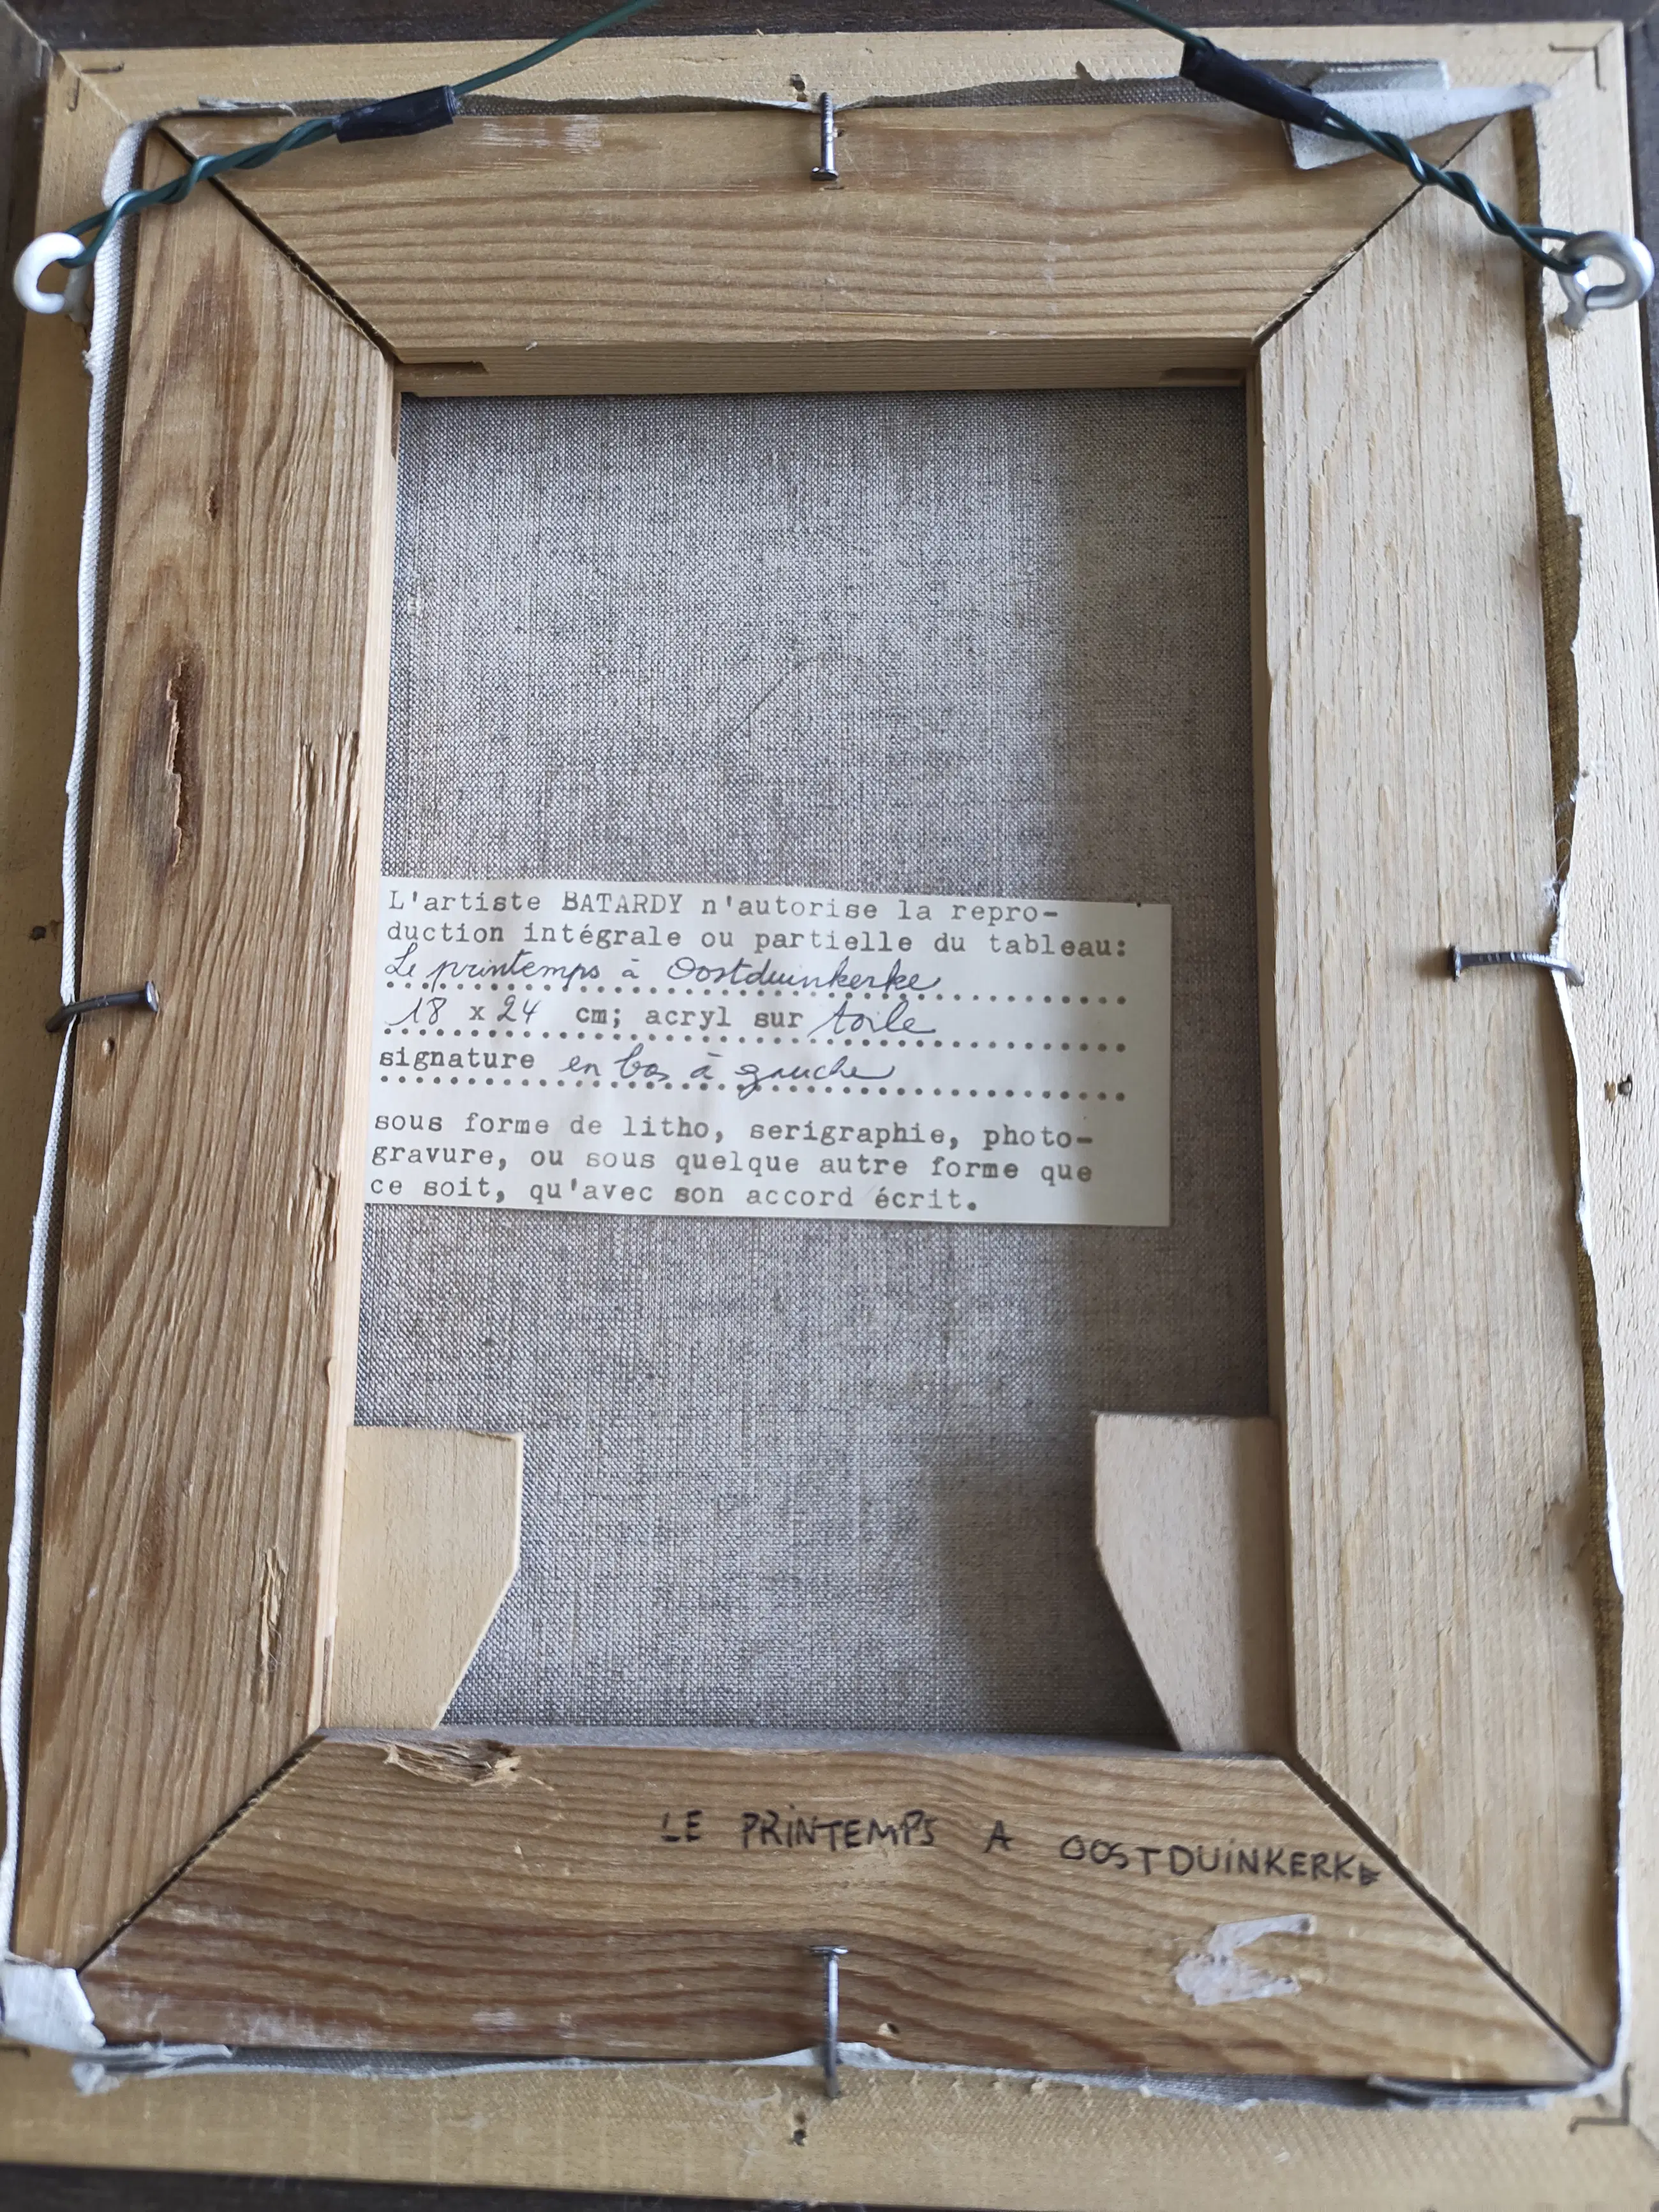 L'artiste BATARDY n'autorise la repro-
duction intégrale ou partielle du tableau:
Le printemps à Oostduinkerke
18 x 24 cm; acryl sur toile
signature en bas à gauche
sous forme de litho, serigraphie, photo-
gravure, ou sous quelque autre forme que
ce soit, qu'avec son accord écrit.
LE PRINTEMPS A OOSTDUINKERKE